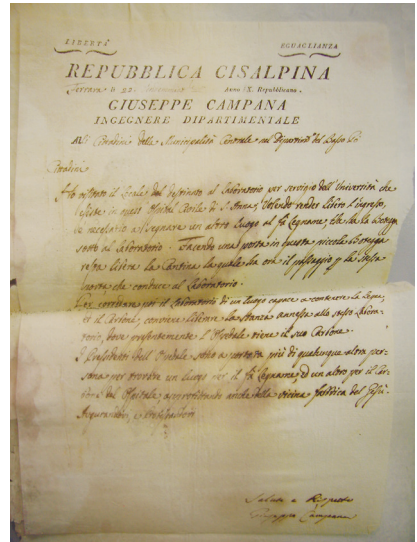 LIBERTÀ EGUAGLIANZA
REPUBBLICA CISALPINA
Ferrara li 22 Anno X. Repubblicano.
GIUSEPPE CAMPANA
INGEGNERE DIPARTIMENTALE
Alli Cittadini della Municipalità Centrale nel Dipartim.º del Basso Pò
Cittadini
Hò visitato il Locale destinato al Laboratorio per servizio dell'Università che
esiste in quest' Civile di S. Anna. Volendo render libero l'ingresso,
è necessario assegnare un altro luogo al Legname, che ha la Bottega
sotto al Laboratorio. Facendo una porta in questa piccola Bottega
resta libera la Cantina la quale ha ora il passaggio p la stessa
porta che conduce al Laboratorio.
per il Laboratorio di un luogo capace a contenere la Legna,
et il Carbone, conviene la stanza annessa allo stesso Labora-
torio, dove presentemente l'Ospitale tiene il suo Carbone.
I dell'Ospitale sono a portata più di qualunque altra per-
sona per trovare un luogo per il Legname, ed un altro per il Car-
bone del Ospitale, approfittando anche della vicina fabbrica del Gesù.
Salute e Rispetto
Giuseppe Campana